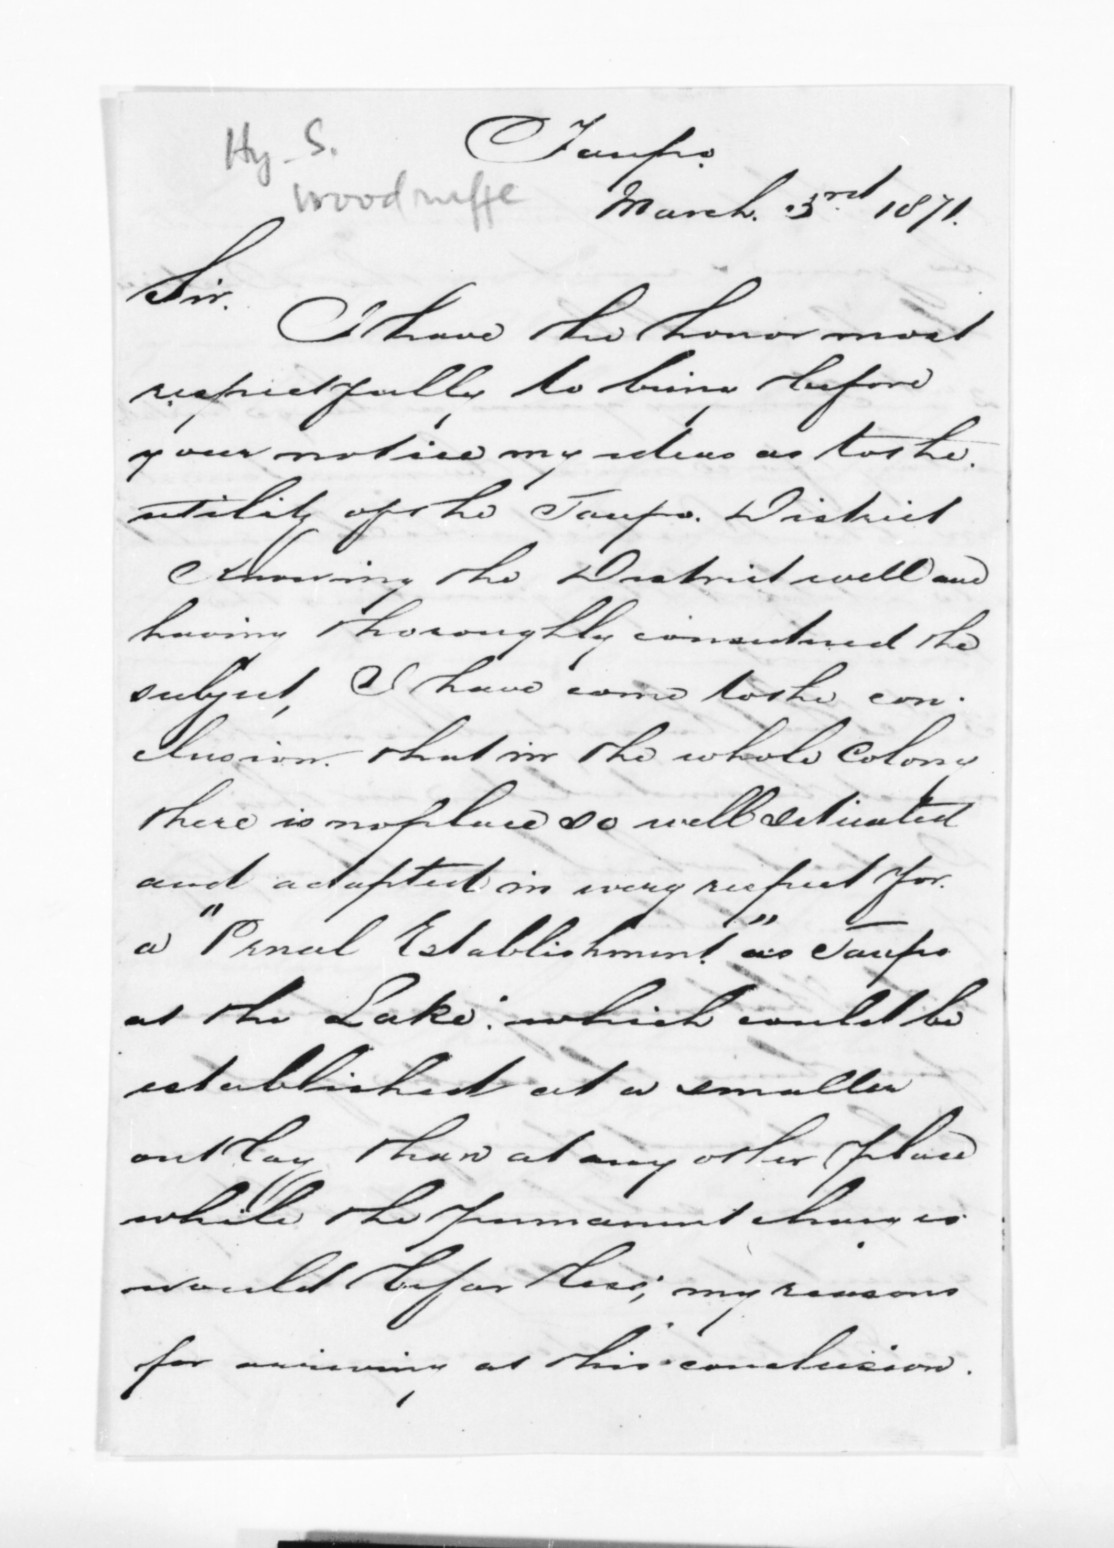 Hy. S.
Woodruffe
Taupo.
March. 3rd. 1871.
Sir.
I have the honor most
respectfully to bring before
your notice my ideas as to the
utility of the Taupo. District
Knowing the District well and
having thoroughly considered the
subject, I have come to the con-
clusion. that in the whole Colony
there is no place so well situated
and adapted in every respect for.
a "Penal Establishment" as Taupo
at the Lake: which could be
established at a smaller
outlay than at any other place
while the permanent charges
would be far less; my reasons
for arriving at this conclusion.